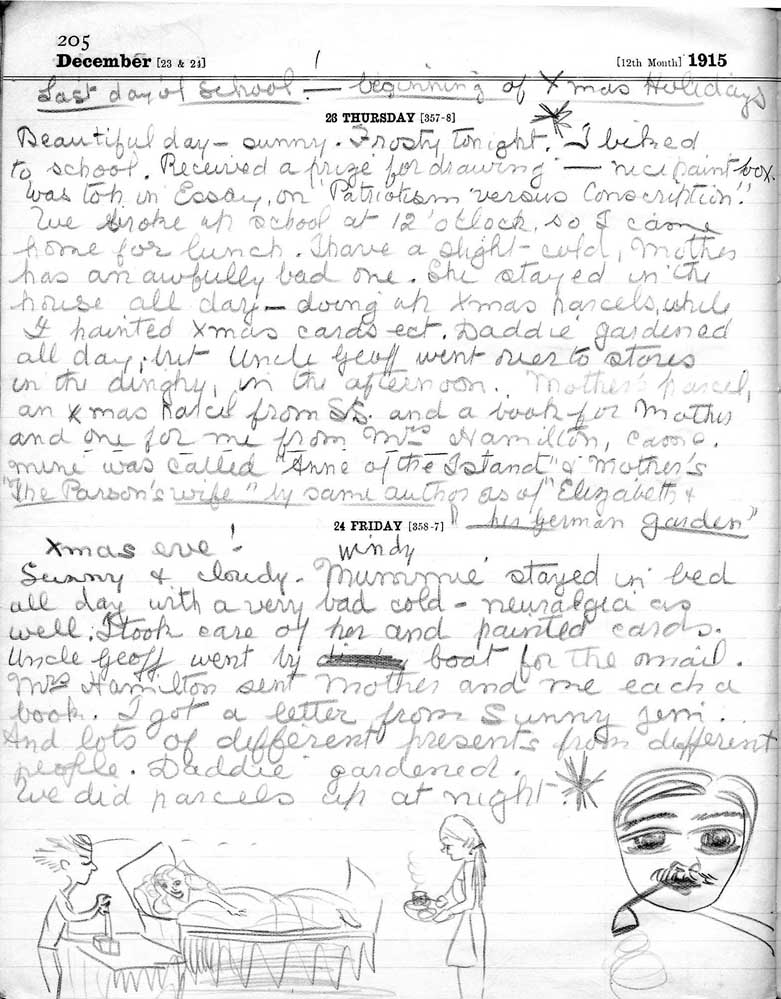 205
December [23 & 24] [12th Month] 1915
Last day of School! — beginning of Xmas Holidays
23 THURSDAY [357-8]
Beautiful day — sunny. Frosty tonight. I biked
to school. Received a prize for drawing — nice paint box.
Was top in Essay, on "Patriotism versus Conscription".
We broke up school at 12 o'clock, so I came
home for lunch. I have a slight cold, Mother
has an awfully bad one. She stayed in the
house all day — doing up Xmas parcels, while
I painted Xmas cards ect. Daddie gardened
all day, but Uncle Geoff went over to stores
in the dinghy, in the afternoon. Mother's parcel,
an Xmas parcel from S.S. and a book for Mother
and one for me from Mrs Hamilton, came.
mine was called "Anne of the Island" & Mother's
"The Parson's wife" by same author as of "Elizabeth &
her German garden"
24 FRIDAY [358-7]
Xmas eve! windy
Sunny & cloudy. Mummie stayed in bed
all day with a very bad cold — neuralgia as
well; I took care of her and painted cards.
Uncle Geoff went by boat for the mail.
Mrs Hamilton sent Mother and me each a
book. I got a letter from Sunny Jem.
And lots of different presents from different
people. Daddie gardened.
We did parcels up at night.